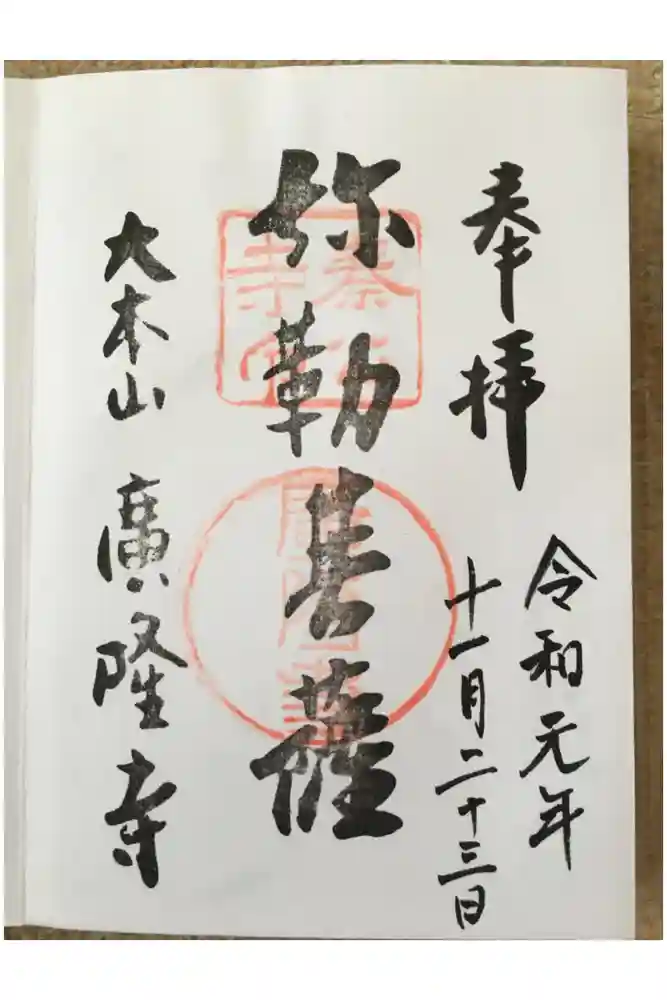 奉拝
令和元年
十一月二十三日
弥勒菩薩
大本山 廣隆寺
廣隆寺